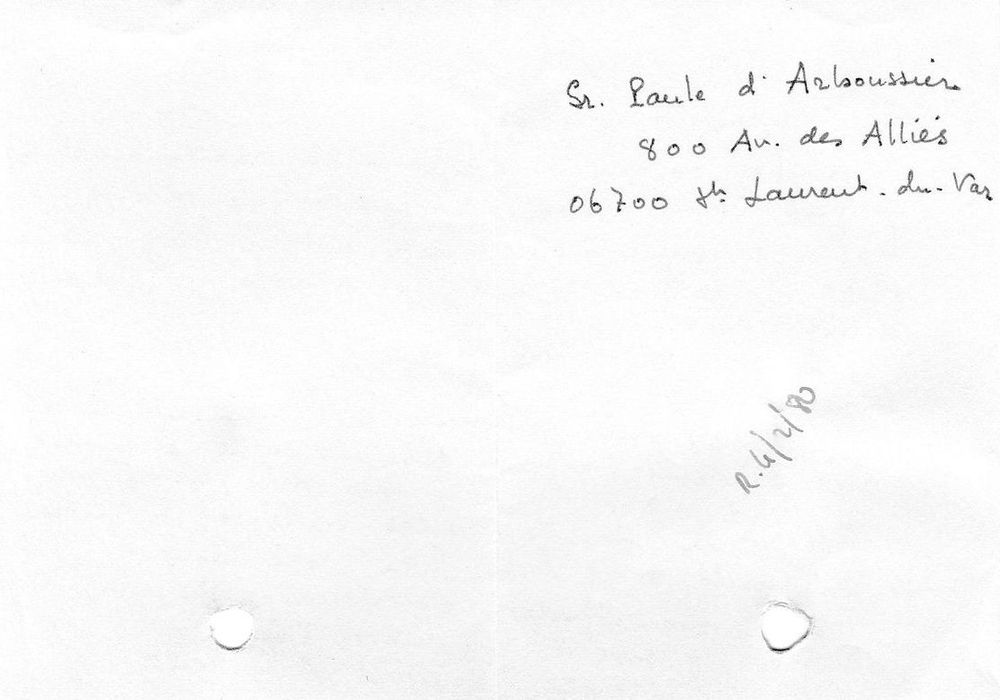 Sr. Paule d'Arboussier
800 Av. des Alliés
06700 St Laurent-du-Var
R. 4/2/80